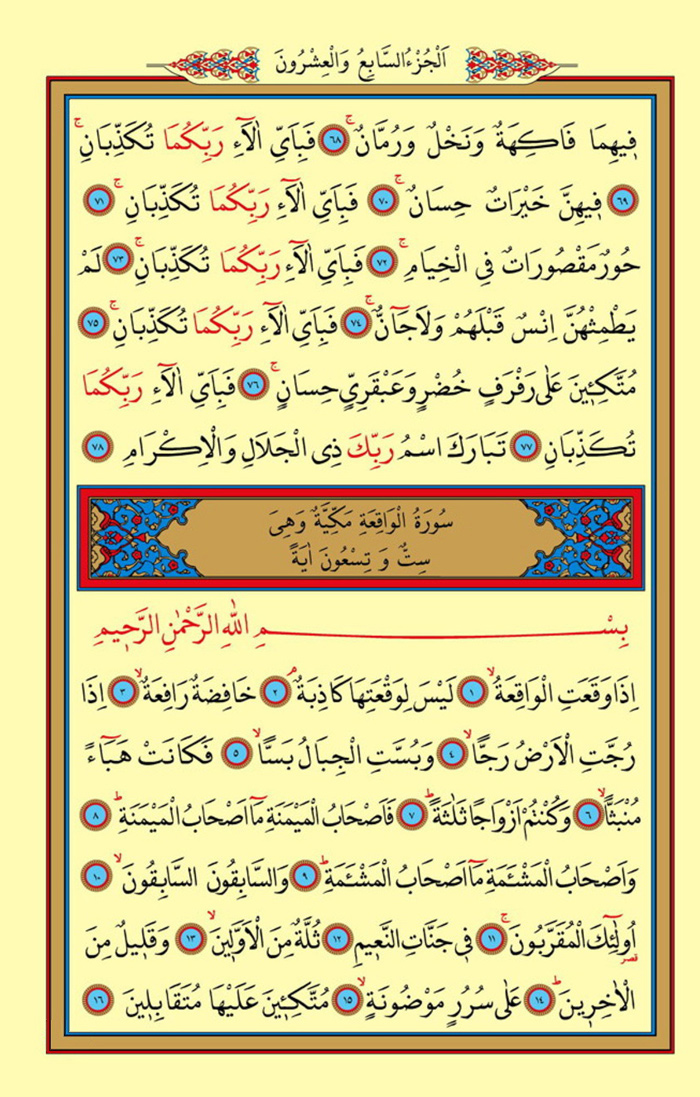 اَلْجُزْءُ السَّابِعُ وَالْعِشْرُونَ
فٖيهِمَا فَاكِهَةٌ وَنَخْلٌ وَرُمَّانٌۚ ﴿٦٨﴾ فَبِاَيِّ اٰلَٓاءِ رَبِّكُمَا تُكَذِّبَانِۚ
﴿٦٩﴾ فٖيهِنَّ خَيْرَاتٌ حِسَانٌۚ ﴿٧٠﴾ فَبِاَيِّ اٰلَٓاءِ رَبِّكُمَا تُكَذِّبَانِۚ ﴿٧١﴾
حُورٌ مَقْصُورَاتٌ فِي الْخِيَامِۚ ﴿٧٢﴾ فَبِاَيِّ اٰلَٓاءِ رَبِّكُمَا تُكَذِّبَانِۚ ﴿٧٣﴾ لَمْ
يَطْمِثْهُنَّ اِنْسٌ قَبْلَهُمْ وَلَا جَٓانٌّۚ ﴿٧٤﴾ فَبِاَيِّ اٰلَٓاءِ رَبِّكُمَا تُكَذِّبَانِۚ ﴿٧٥﴾
مُتَّكِـٖٔينَ عَلٰى رَفْرَفٍ خُضْرٍ وَعَبْقَرِيٍّ حِسَانٍۚ ﴿٧٦﴾ فَبِاَيِّ اٰلَٓاءِ رَبِّكُمَا
تُكَذِّبَانِ ﴿٧٧﴾ تَبَارَكَ اسْمُ رَبِّكَ ذِي الْجَلَالِ وَالْاِكْرَامِ ﴿٧٨﴾
سُورَةُ الْوَاقِعَةِ مَكِّيَّةٌ وَهِيَ
سِتٌّ وَ تِسْعُونَ اٰيَةً
بِسْمِ اللّٰهِ الرَّحْمٰنِ الرَّحٖيمِ
اِذَا وَقَعَتِ الْوَاقِعَةُۙ ﴿١﴾ لَيْسَ لِوَقْعَتِهَا كَاذِبَةٌۘ ﴿٢﴾ خَافِضَةٌ رَافِعَةٌۙ ﴿٣﴾ اِذَا
رُجَّتِ الْاَرْضُ رَجًّاۙ ﴿٤﴾ وَبُسَّتِ الْجِبَالُ بَسًّاۙ ﴿٥﴾ فَكَانَتْ هَبَٓاءً
مُنْبَثًّاۙ ﴿٦﴾ وَكُنْتُمْ اَزْوَاجًا ثَلٰثَةًؕ ﴿٧﴾ فَاَصْحَابُ الْمَيْمَنَةِ مَٓا اَصْحَابُ الْمَيْمَنَةِؕ ﴿٨﴾
وَاَصْحَابُ الْمَشْـَٔمَةِ مَٓا اَصْحَابُ الْمَشْـَٔمَةِؕ ﴿٩﴾ وَالسَّابِقُونَ السَّابِقُونَۙ ﴿١٠﴾
اُو۬لٰٓئِكَ الْمُقَرَّبُونَۚ ﴿١١﴾ فٖي جَنَّاتِ النَّعٖيمِ ﴿١٢﴾ ثُلَّةٌ مِنَ الْاَوَّلٖينَۙ ﴿١٣﴾ وَقَلٖيلٌ مِنَ
قصر
الْاٰخِرٖينَؕ ﴿١٤﴾ عَلٰى سُرُرٍ مَوْضُونَةٍۙ ﴿١٥﴾ مُتَّكِـٖٔينَ عَلَيْهَا مُتَقَابِلٖينَ ﴿١٦﴾